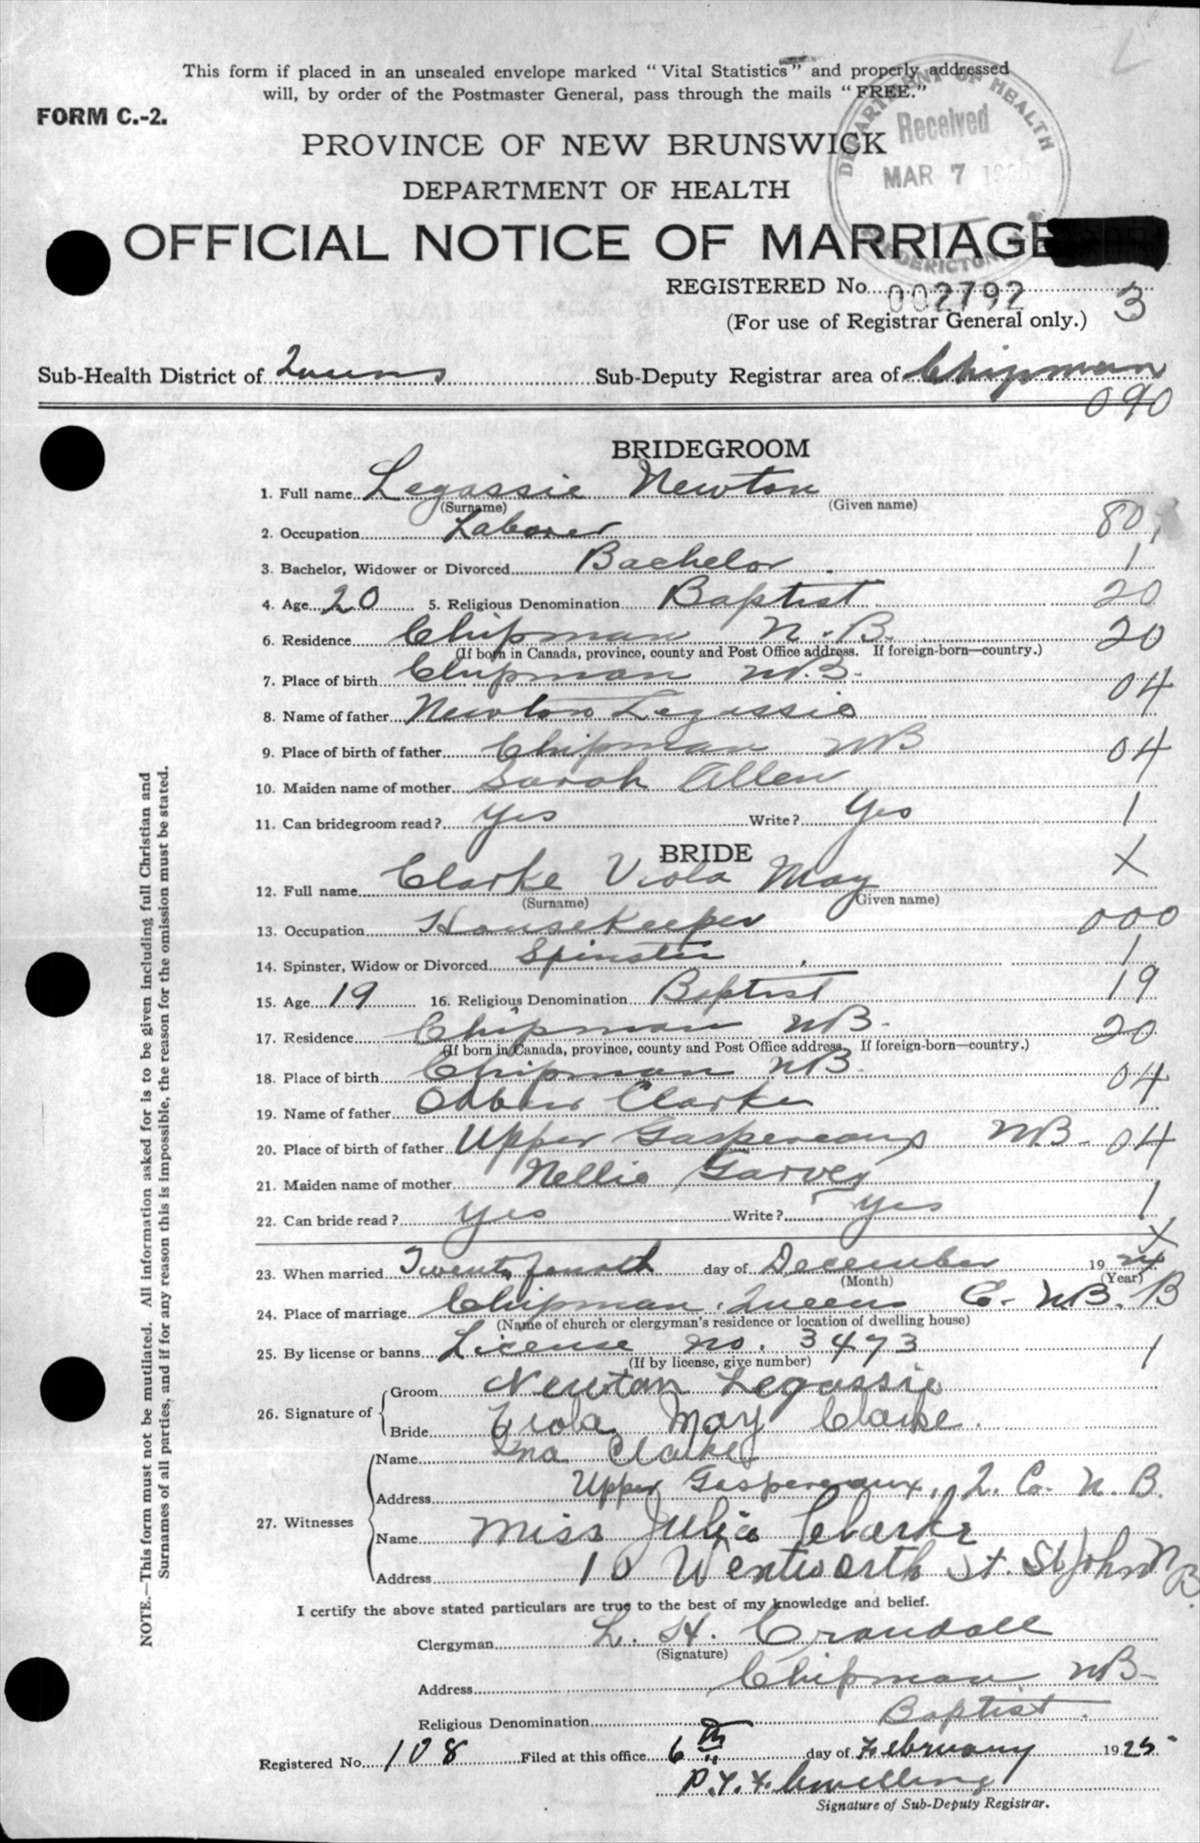 This form if placed in an unsealed envelope marked "Vital Statistics" and properly addressed
will, by order of the Postmaster General, pass through the mails "FREE."
FORM C.-2.
DEPARTMENT OF HEALTH
Received
MAR 7
FREDERICTON
PROVINCE OF NEW BRUNSWICK
DEPARTMENT OF HEALTH
OFFICIAL NOTICE OF MARRIAGE
REGISTERED No. 002792
3
(For use of Registrar General only.)
Sub-Health District of Queens Sub-Deputy Registrar area of Chipman
090
BRIDEGROOM
1. Full name Legassie Newton
(Surname) (Given name)
2. Occupation Laborer 80
3. Bachelor, Widower or Divorced Bachelor 1
4. Age 20 5. Religious Denomination Baptist 20
6. Residence Chipman N.B. 20
(If born in Canada, province, county and Post Office address. If foreign-born—country.)
7. Place of birth Chipman N.B. 04
8. Name of father Newton Legassie
9. Place of birth of father Chipman NB 04
10. Maiden name of mother Sarah Allen
11. Can bridegroom read? Yes Write? Yes 1
BRIDE
12. Full name Clarke Viola May X
(Surname) (Given name)
13. Occupation Housekeeper 000
14. Spinster, Widow or Divorced Spinster 1
15. Age 19 16. Religious Denomination Baptist 19
17. Residence Chipman NB. 20
(If born in Canada, province, county and Post Office address. If foreign-born—country.)
18. Place of birth Chipman NB. 04
19. Name of father Clarke
20. Place of birth of father Upper Gaspereaux NB. 04
21. Maiden name of mother Nellie Garvey
22. Can bride read? Yes Write? Yes 1
X
23. When married Twenty fourth day of December 1924
(Month) (Year)
24. Place of marriage Chipman, Queens C. NB. B
(Name of church or clergyman's residence or location of dwelling house)
25. By license or banns License no. 3473 1
(If by license, give number)
26. Signature of
Groom Newton Legassie
Bride Viola May Clarke.
27. Witnesses
Name Ina Clarke
Address Upper Gaspereaux, Q. Co. N. B.
Name Miss Julia Clarke
Address 10 Wentworth St. St John N B.
I certify the above stated particulars are true to the best of my knowledge and belief.
Clergyman L. H. Crandall
(Signature)
Address Chipman NB
Religious Denomination Baptist.
Registered No. 108 Filed at this office 6th day of February 1925
Signature of Sub-Deputy Registrar.
NOTE.—This form must not be mutilated. All information asked for is to be given including full Christian and
Surnames of all parties, and if for any reason this is impossible, the reason for the omission must be stated.